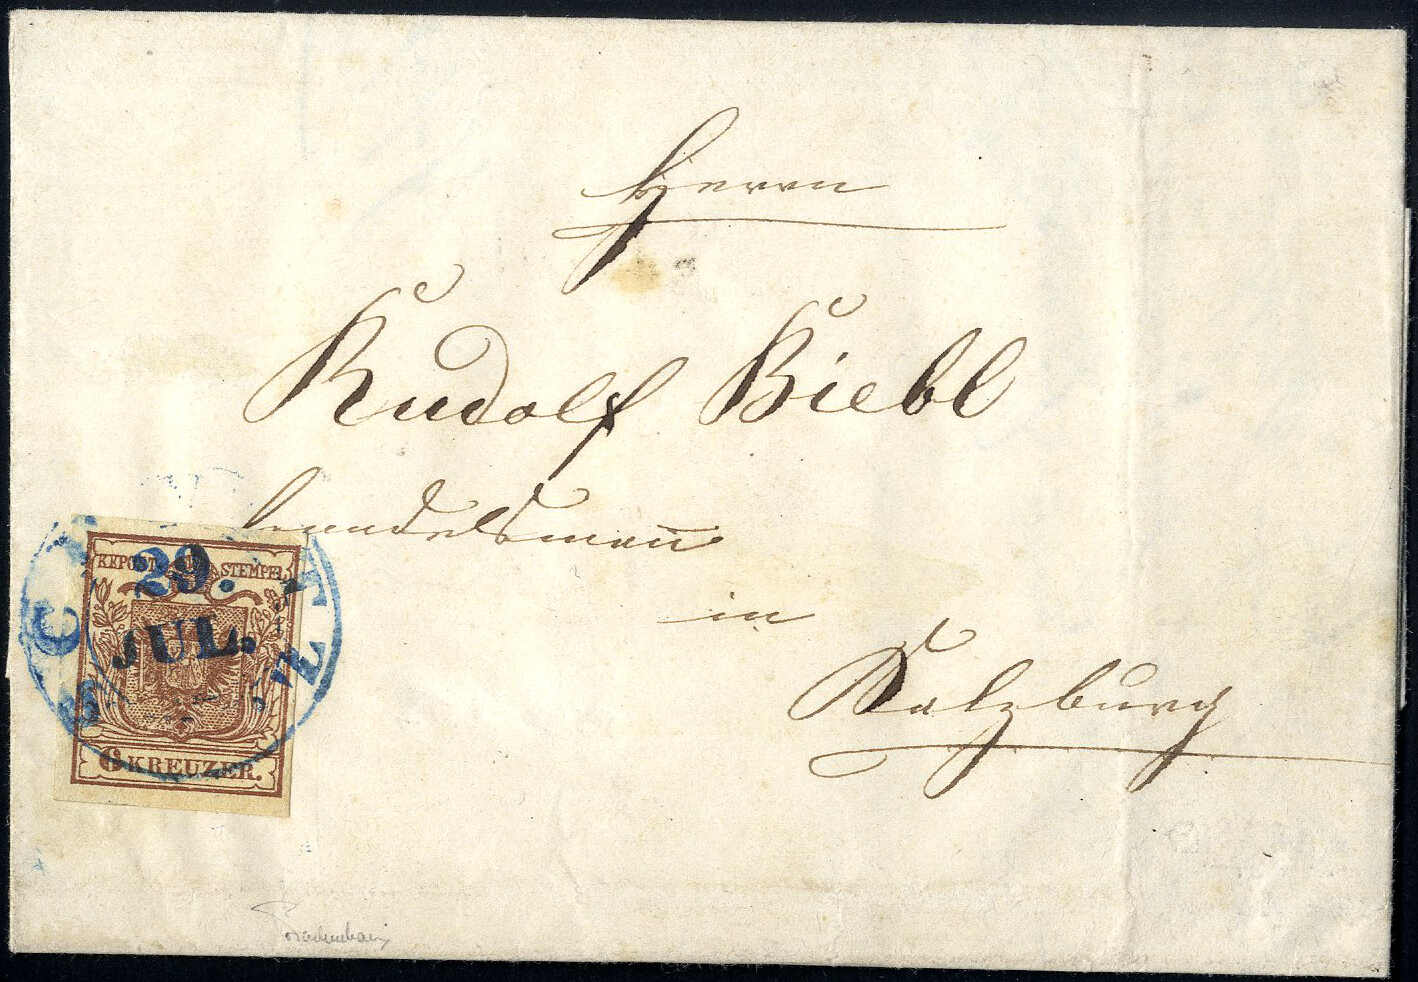 Herrn
Rudolf Biebl
handelsmañ
in
Salzburg
KKPOST STEMPEL
29.
JUL.
6 KREUZER.